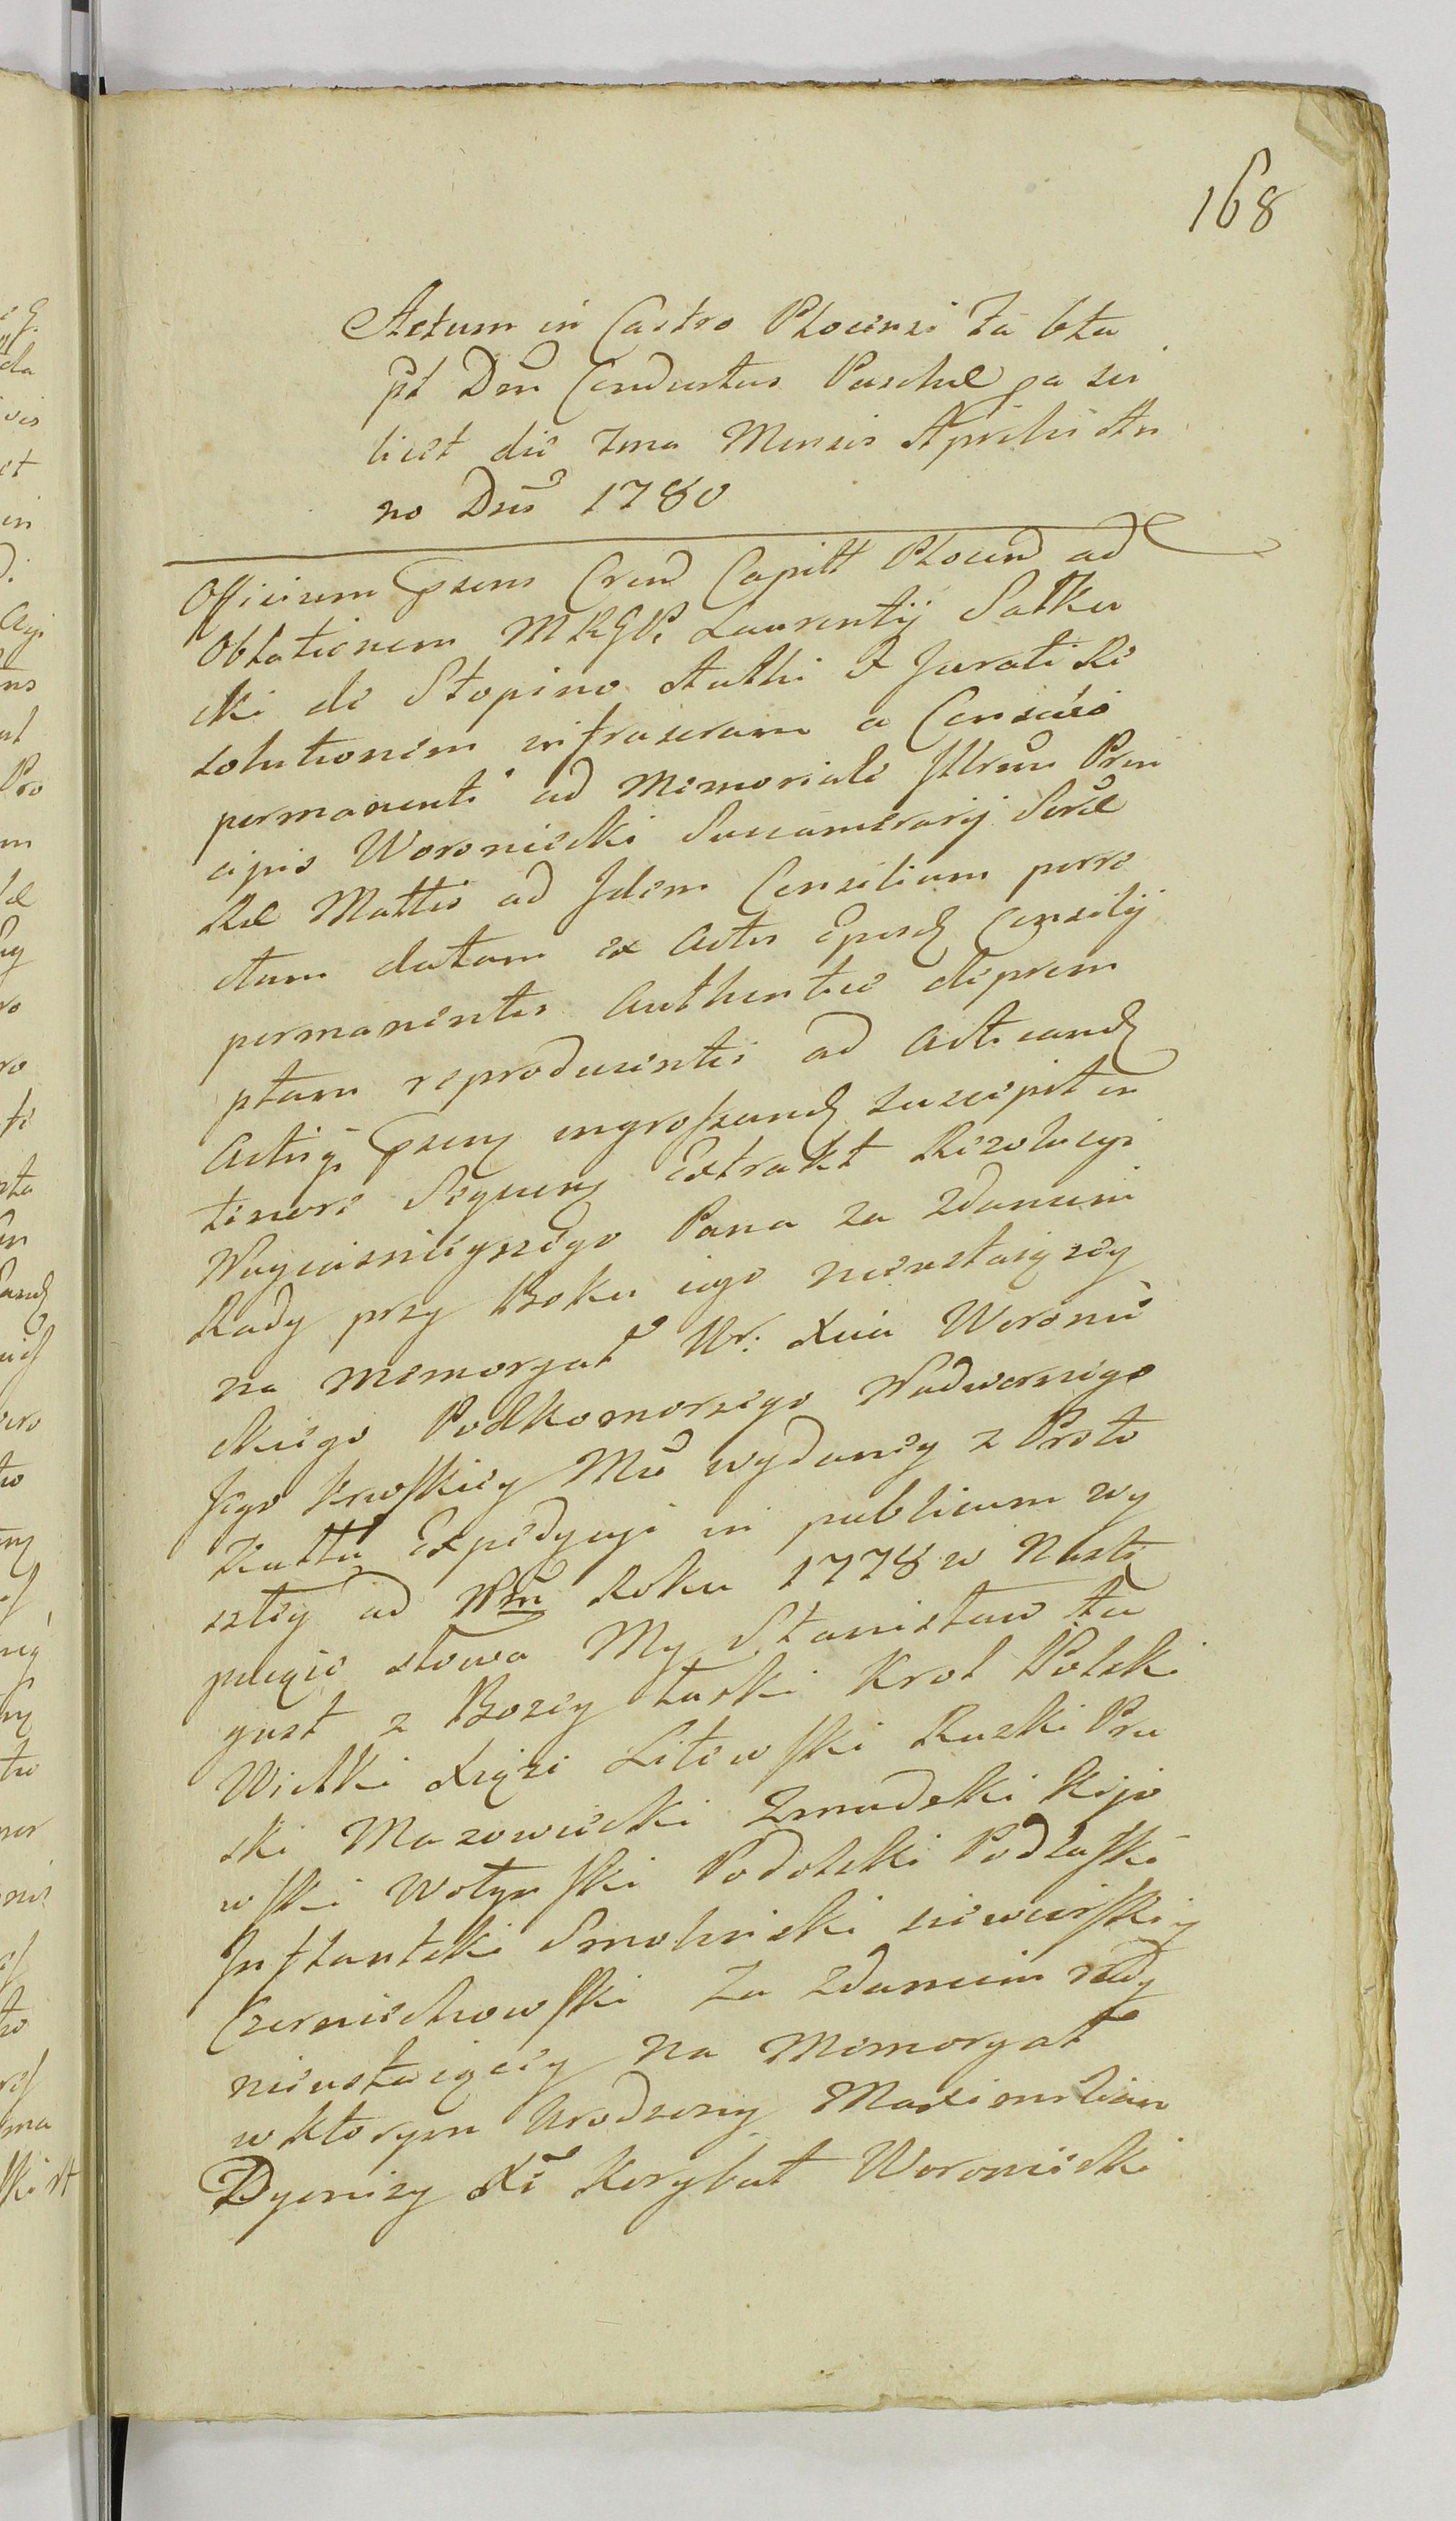 168
Actum in Castro Plocensi Fa 6ta
pt Dm Conductus Paschæ pa sci
licet die 7ma Mensis Aprilis An
no Dni 1780
Officium Psens Crend Capitt Plocend ad
Oblationem MRGD. Laurentij Satku
cki de Stopino Authi & Jurati Re
solutionem infrascram a Consilio
permanenti ad Memoriale Illrum Prin
cipis Woroniecki Succamerarij Sacræ
Ræ Mattis ad Idem Consilium porre
ctum datam ex Actis Ejusd Consilij
permanentis Authentice deprom
ptam reproducentis ad Acticand
Actisq Psenz ingrossand suscepit in
tenore Sequenz Extrakt Rezolucyi
Nayiasnieyszego Pana za Zdaniem
Rady przy Boku iego nieustaiącey
na Memoryał Ur: Xcia Woronie
ckiego Podkomorzego Nadwornego
Jego Krolskiey Mci wydaney z Proto
kułłu Expedycyi in publicum wy
szłey ad Nrm Roku 1778 w Nastę
puiące słowa My Stanisław Au
gust z Bozey Łaski Krol Polski
Wielki Xiąże Litewski Ruski Pru
ski Mazowiecki Zmudzki Kijo
wski Wołynski Podolski Podlaski
Inflantski Smolenski siewierski y
Czerniechowski Za Zdaniem rady
nieustaiącey na Memoryał
w ktorym Urodzony Maximilian
Dyonizy Xe Korybut Woroniecki